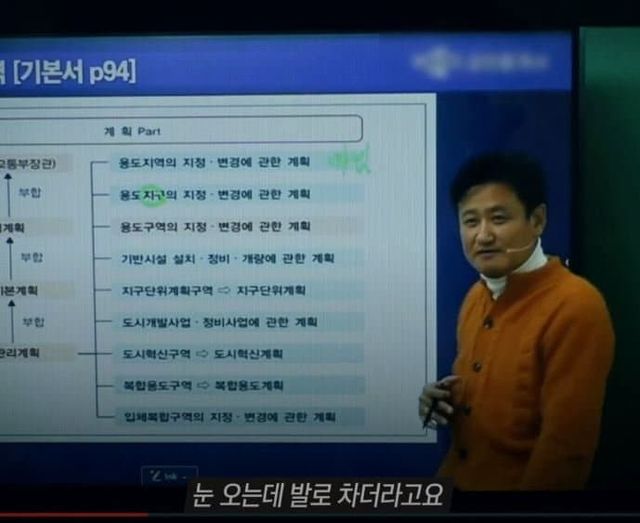 [기본서 p94]
계 획 Part
교통부장관)
용도지역의 지정 · 변경에 관한 계획
부합
용도지구의 지정 · 변경에 관한 계획
계획
용도구역의 지정 · 변경에 관한 계획
부합
기반시설 설치 · 정비 · 개량에 관한 계획
기본계획
지구단위계획구역 ⇨ 지구단위계획
부합
도시개발사업 · 정비사업에 관한 계획
관리계획
도시혁신구역 ⇨ 도시혁신계획
복합용도구역 ⇨ 복합용도계획
입체복합구역의 지정 · 변경에 관한 계획
눈 오는데 발로 차더라고요